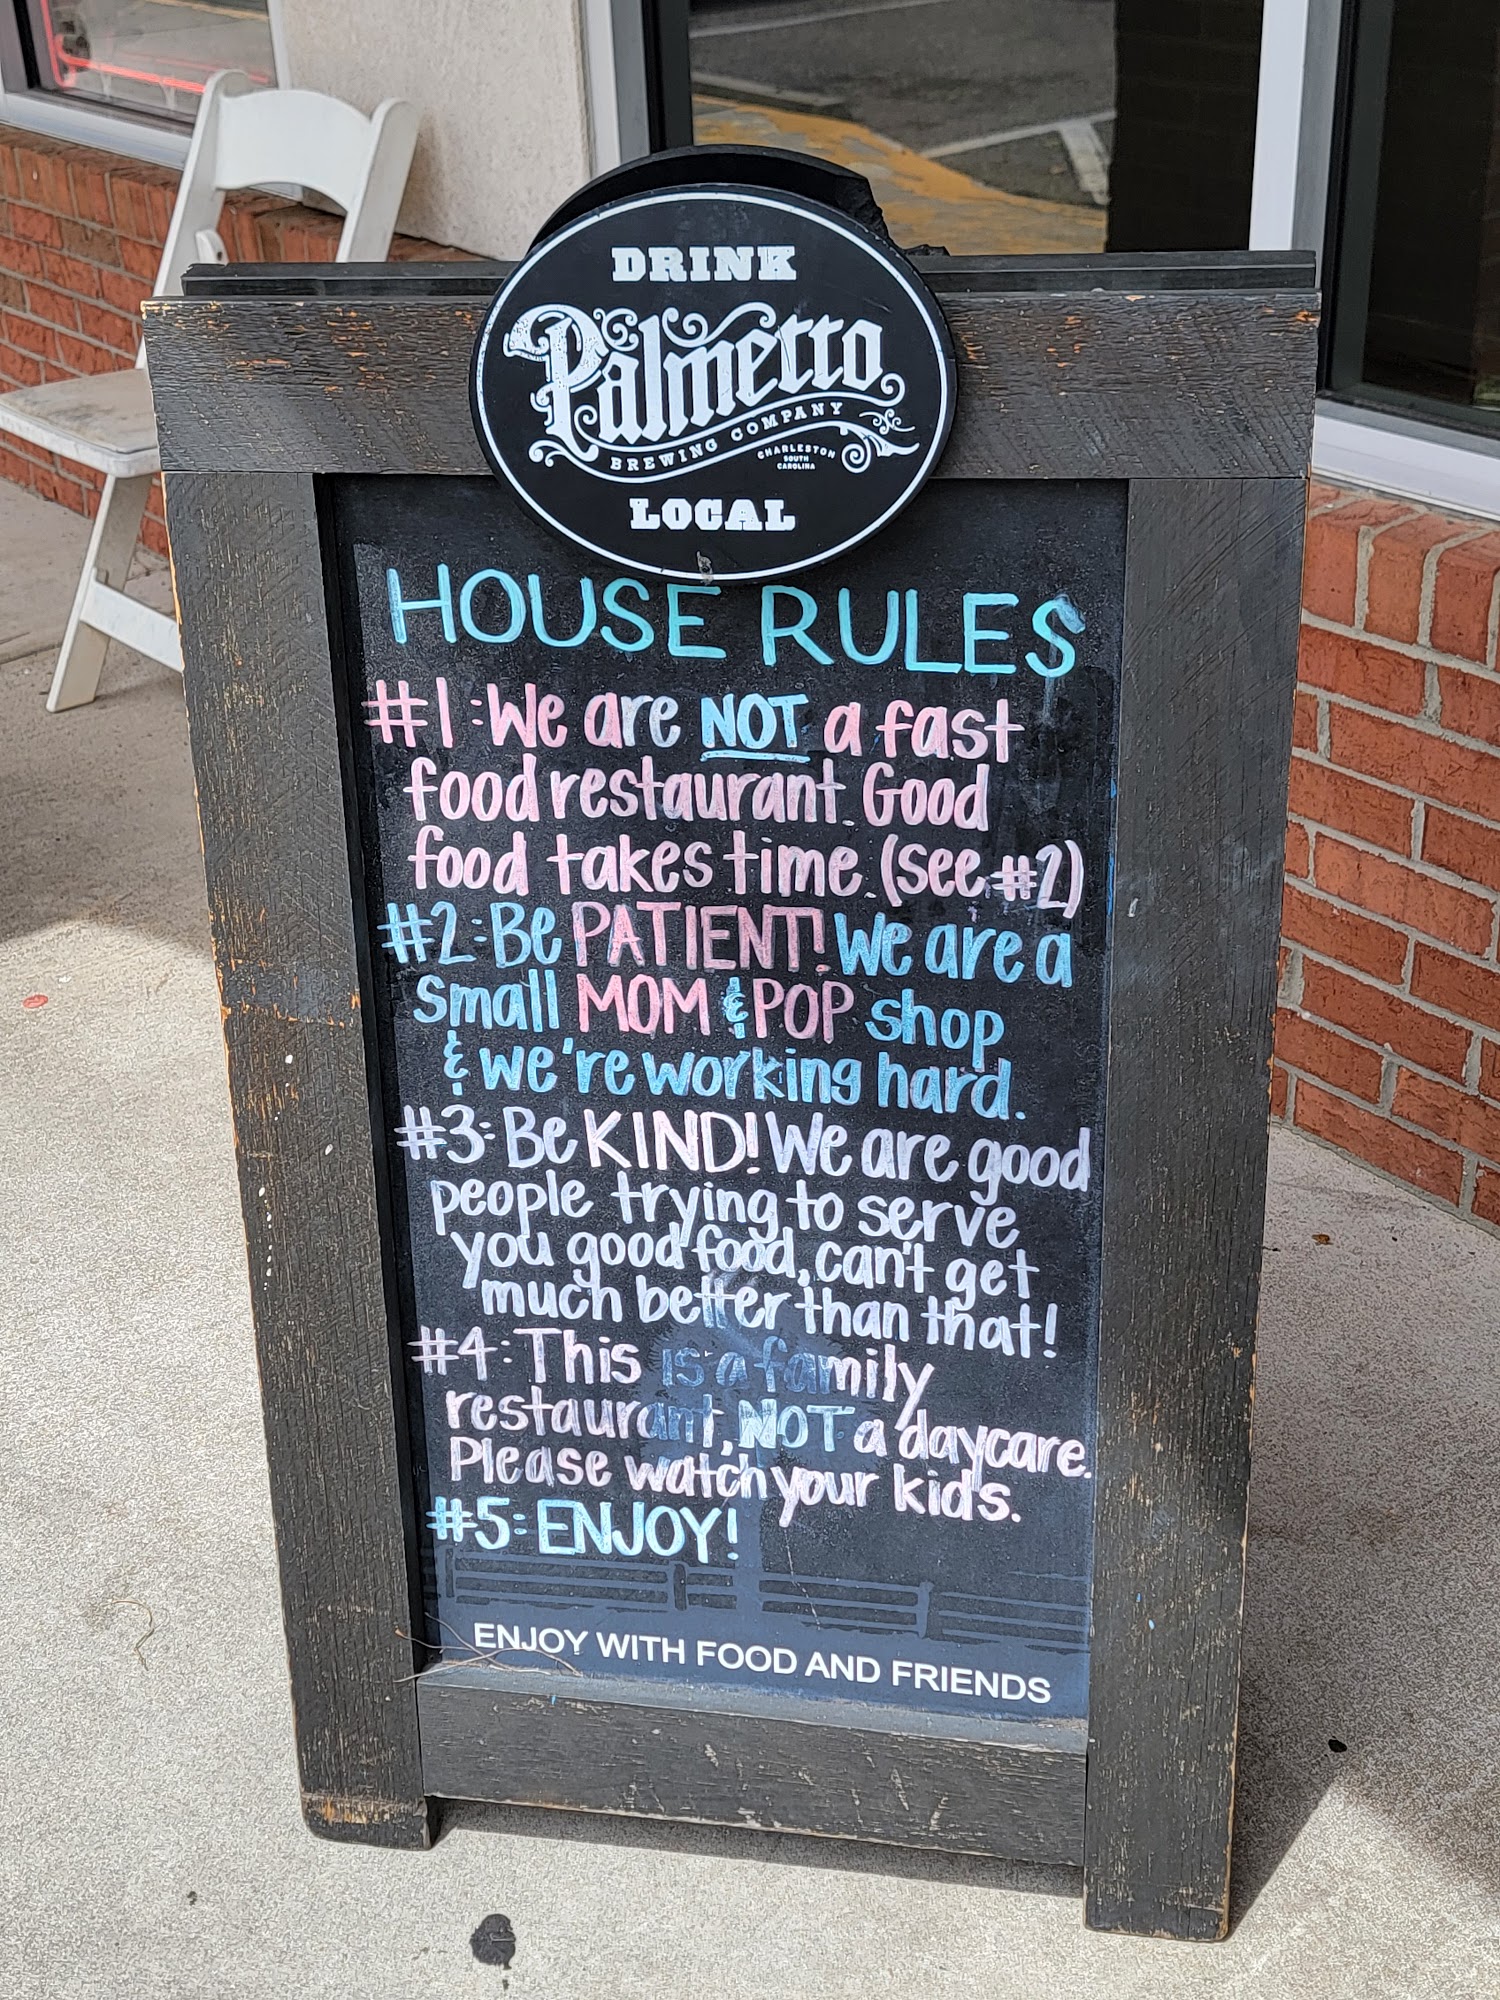 DRINK
Palmetto
BREWING COMPANY
CHARLESTON
SOUTH
CAROLINA
LOCAL
HOUSE RULES
#1: We are NOT a fast
food restaurant. Good
food takes time. (see #2)
#2: Be PATIENT! We are a
small MOM & POP shop
& we're working hard.
#3: Be KIND! We are good
people trying to serve
you good food, can't get
much better than that!
#4: This is a family
restaurant, NOT a daycare.
Please watch your kids.
#5: ENJOY!
ENJOY WITH FOOD AND FRIENDS